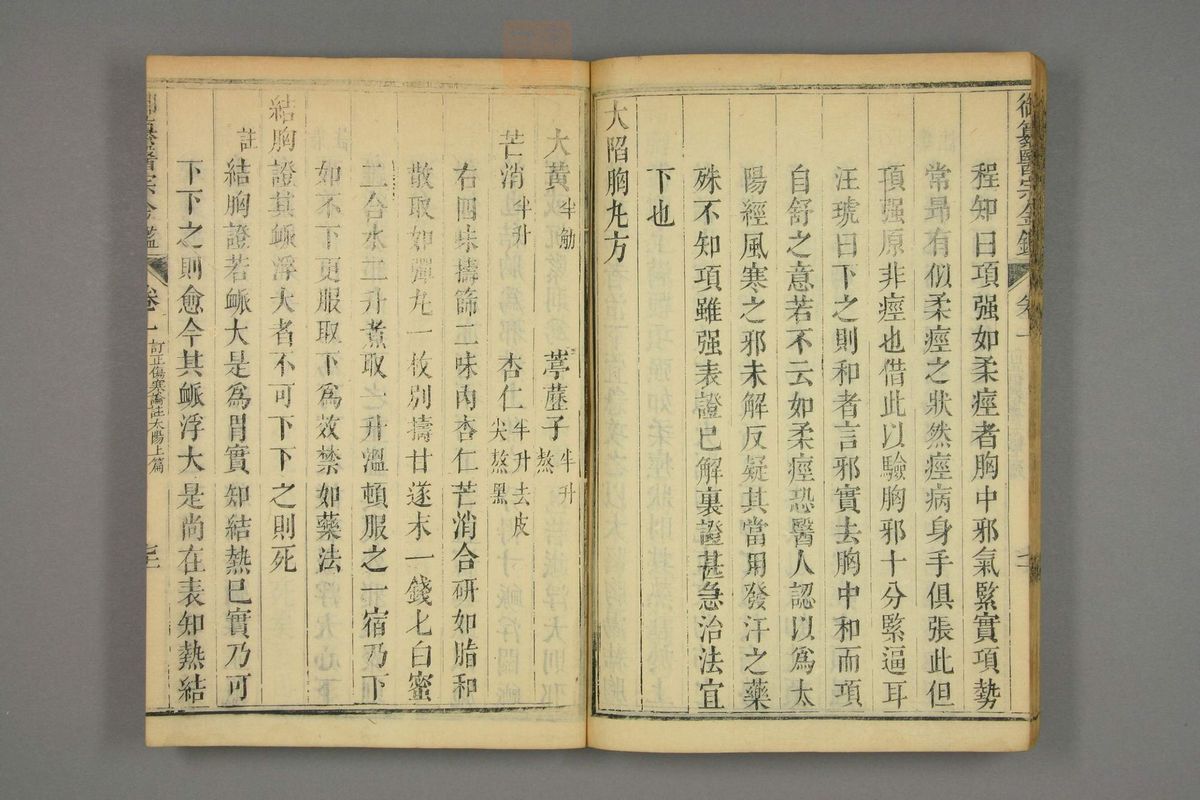 御纂醫宗金鑑
卷一
程知曰項强如柔痙者胸中邪氣緊實項勢
常昻有似柔痙之狀然痙病身手俱張此但
項强原非痙也借此以驗胸邪十分緊逼耳
汪琥曰下之則和者言邪實去胸中和而項
自舒之意若不云如柔痙恐醫人認以爲太
陽經風寒之邪未解反疑其當用發汗之藥
殊不知項雖强表證已解裏證甚急治法宜
下也
大陷胸丸方
大黃半觔 葶藶子半升熬
芒消半升 杏仁半升去皮尖熬黑
右四味擣篩二味內杏仁芒消合研如脂和
散取如彈丸一枚別擣甘遂末一錢匕白蜜
二合水二升煮取一升溫頓服之一宿乃下
如不下更服取下爲效禁如藥法
結胸證其脈浮大者不可下下之則死
註結胸證若脈大是爲胃實知結熱已實乃可
下下之則愈今其脈浮大是尚在表知熱結
御纂醫宗金鑑
卷一 訂正傷寒論註太陽上篇